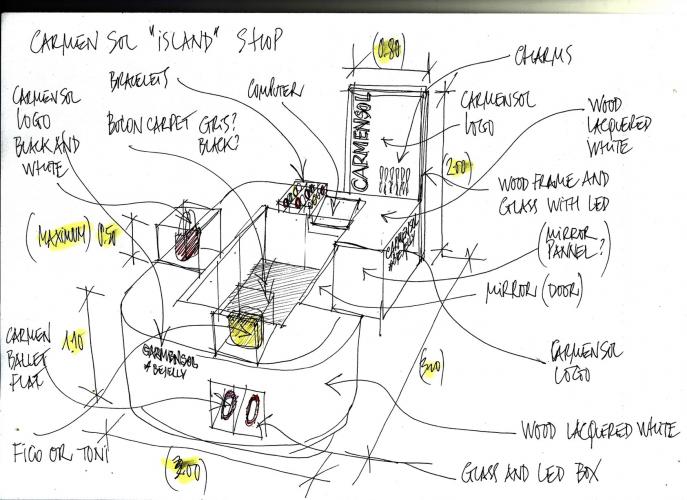 CARMEN SOL "ISLAND" SHOP
(0.80)
CHARMS
BRACELETS
COMPUTER
CARMENSOL
LOGO
BLACK AND
WHITE
BOLON CARPET GRIS?
BLACK?
CARMENSOL
CARMENSOL
LOGO
WOOD
LACQUERED
WHITE
(2.00)
WOOD FRAME AND
GLASS WITH LED
(MAXIMUM) 0.50
CARMENSOL
(MIRROR
PANNEL?)
MIRROR (DOOR)
CARMEN
BALLET
FLAT
1.10
CARMENSOL
# BEJELLY
CARMENSOL
LOGO
WOOD LACQUERED WHITE
FICO OR TONI
GLASS AND LED BOX